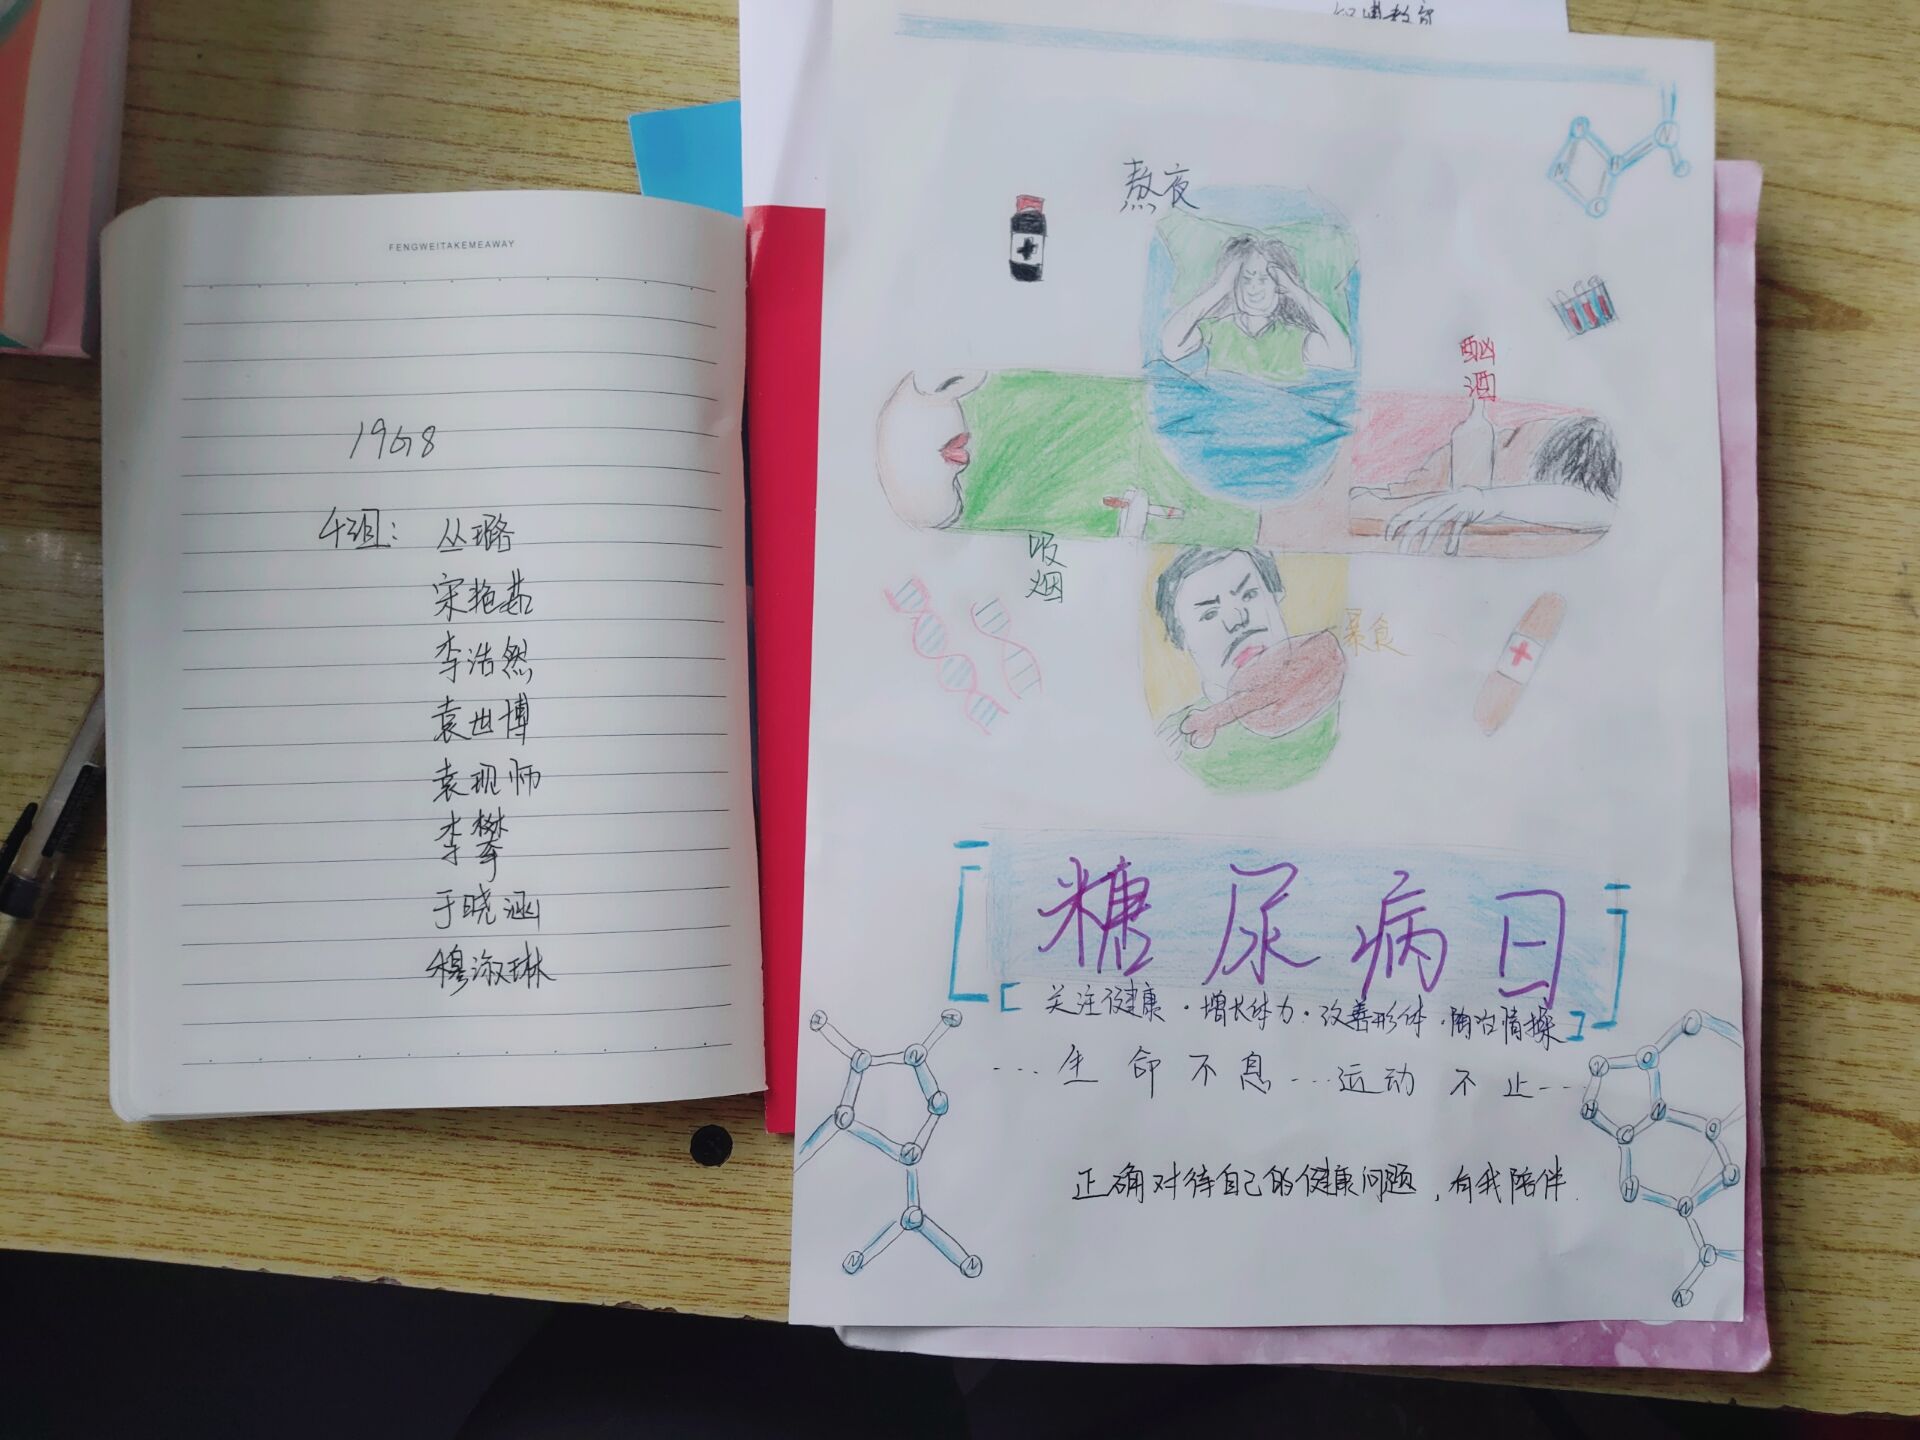 FENGWEITAKEMEAWAY
1968
4组：丛璐
宋艳茹
李浩然
袁世博
袁现师
李攀
于晓涵
穆淑琳
熬夜
酗酒
吸烟
暴食
糖尿病日
关注健康·增长体力·改善形体·陶冶情操
...生命不息...运动不止...
正确对待自己的健康问题，有我陪伴.